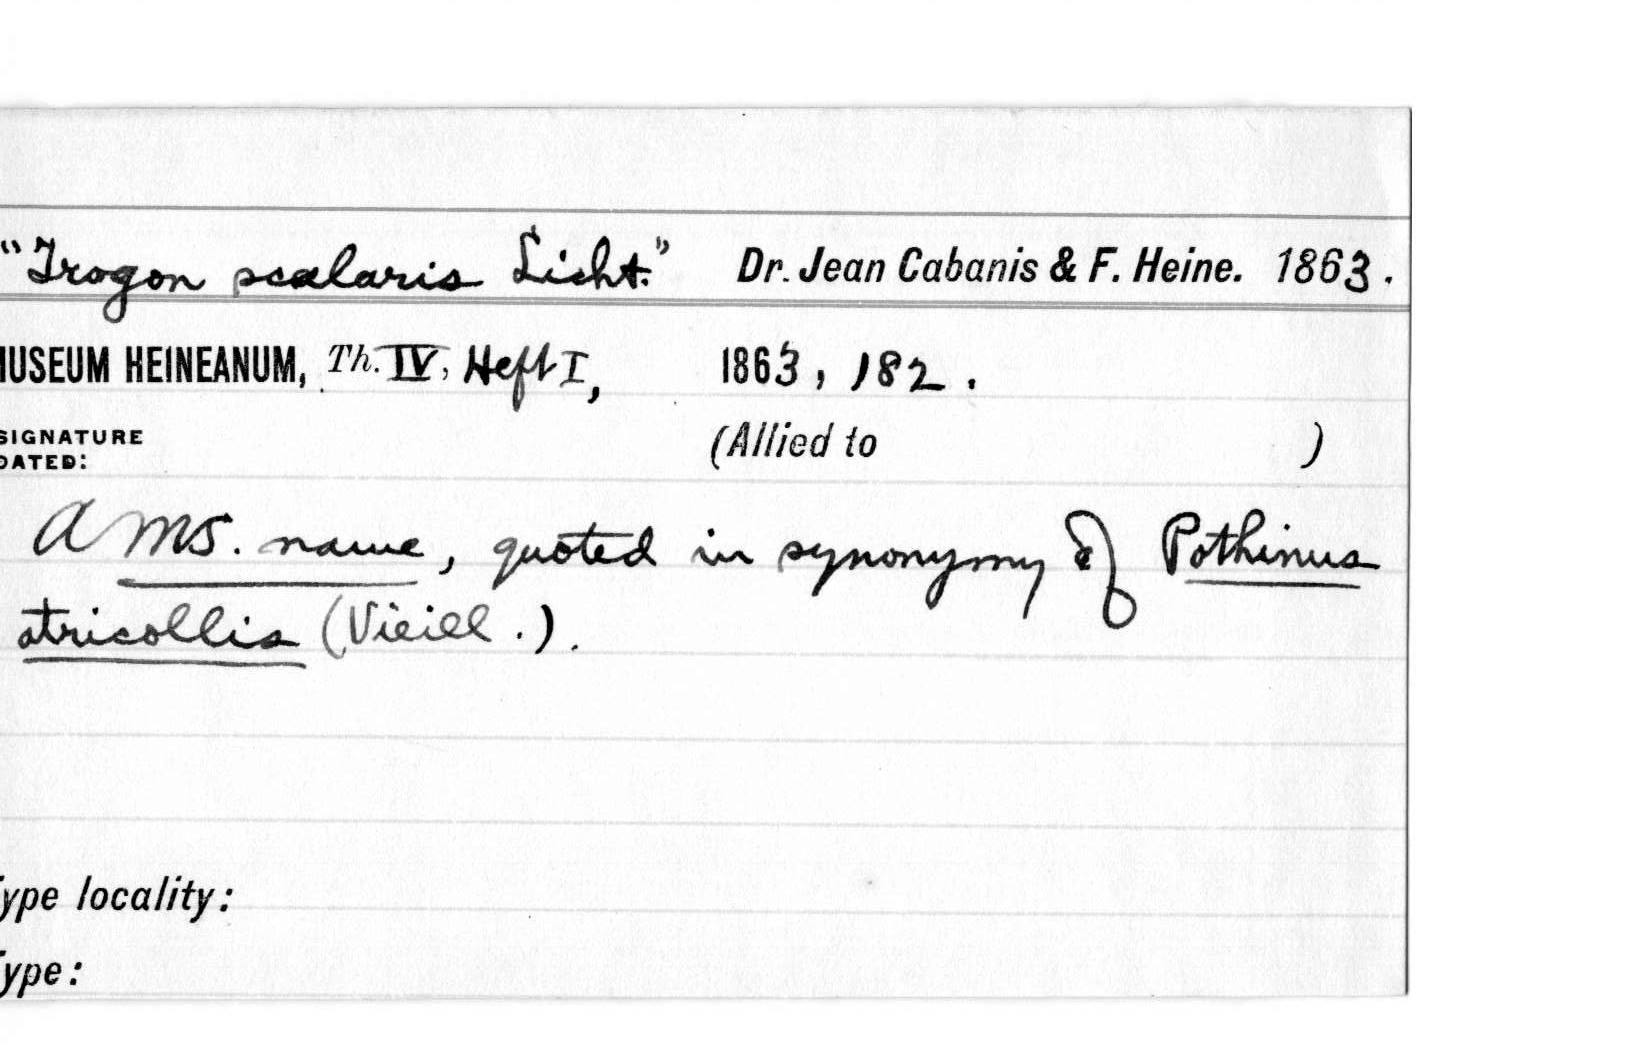 "Trogon scalaris Licht." Dr. Jean Cabanis & F. Heine. 1863.
MUSEUM HEINEANUM, Th. IV, Heft I, 1863, 182.
SIGNATURE (Allied to )
DATED:
A MS. name, quoted in synonymy of Pothinus
atricollis (Vieill.).
Type locality:
Type: